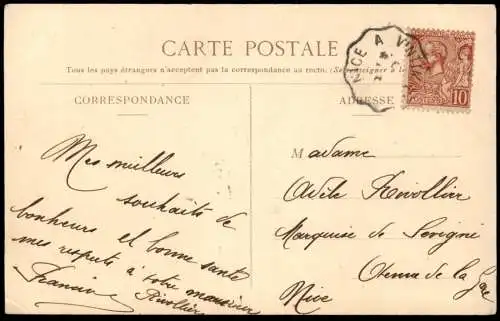 CARTE POSTALE
Tous les pays étrangers n'acceptent pas la correspondance au recto. (Se renseigner à
NICE A VINTIM
10
CORRESPONDANCE
ADRESSE
Mes meilleurs
souhaits de
bonheurs et bonne santé
mes respects à votre monsieur
Francin
Rivollier
Madame
Adèle Rivollier
Marquise de Sevigné
Avenue de la Gare
Nice